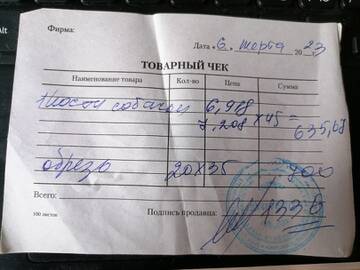 Фирма:
Дата « 6 » марта 2023
ТОВАРНЫЙ ЧЕК
Наименование товара Кол-во Цена Сумма
кости собакам 6,918
7,208 x 45 = 635,67
обрезь 20 x 35 700
Всего:
100 листов Подпись продавца: 1336